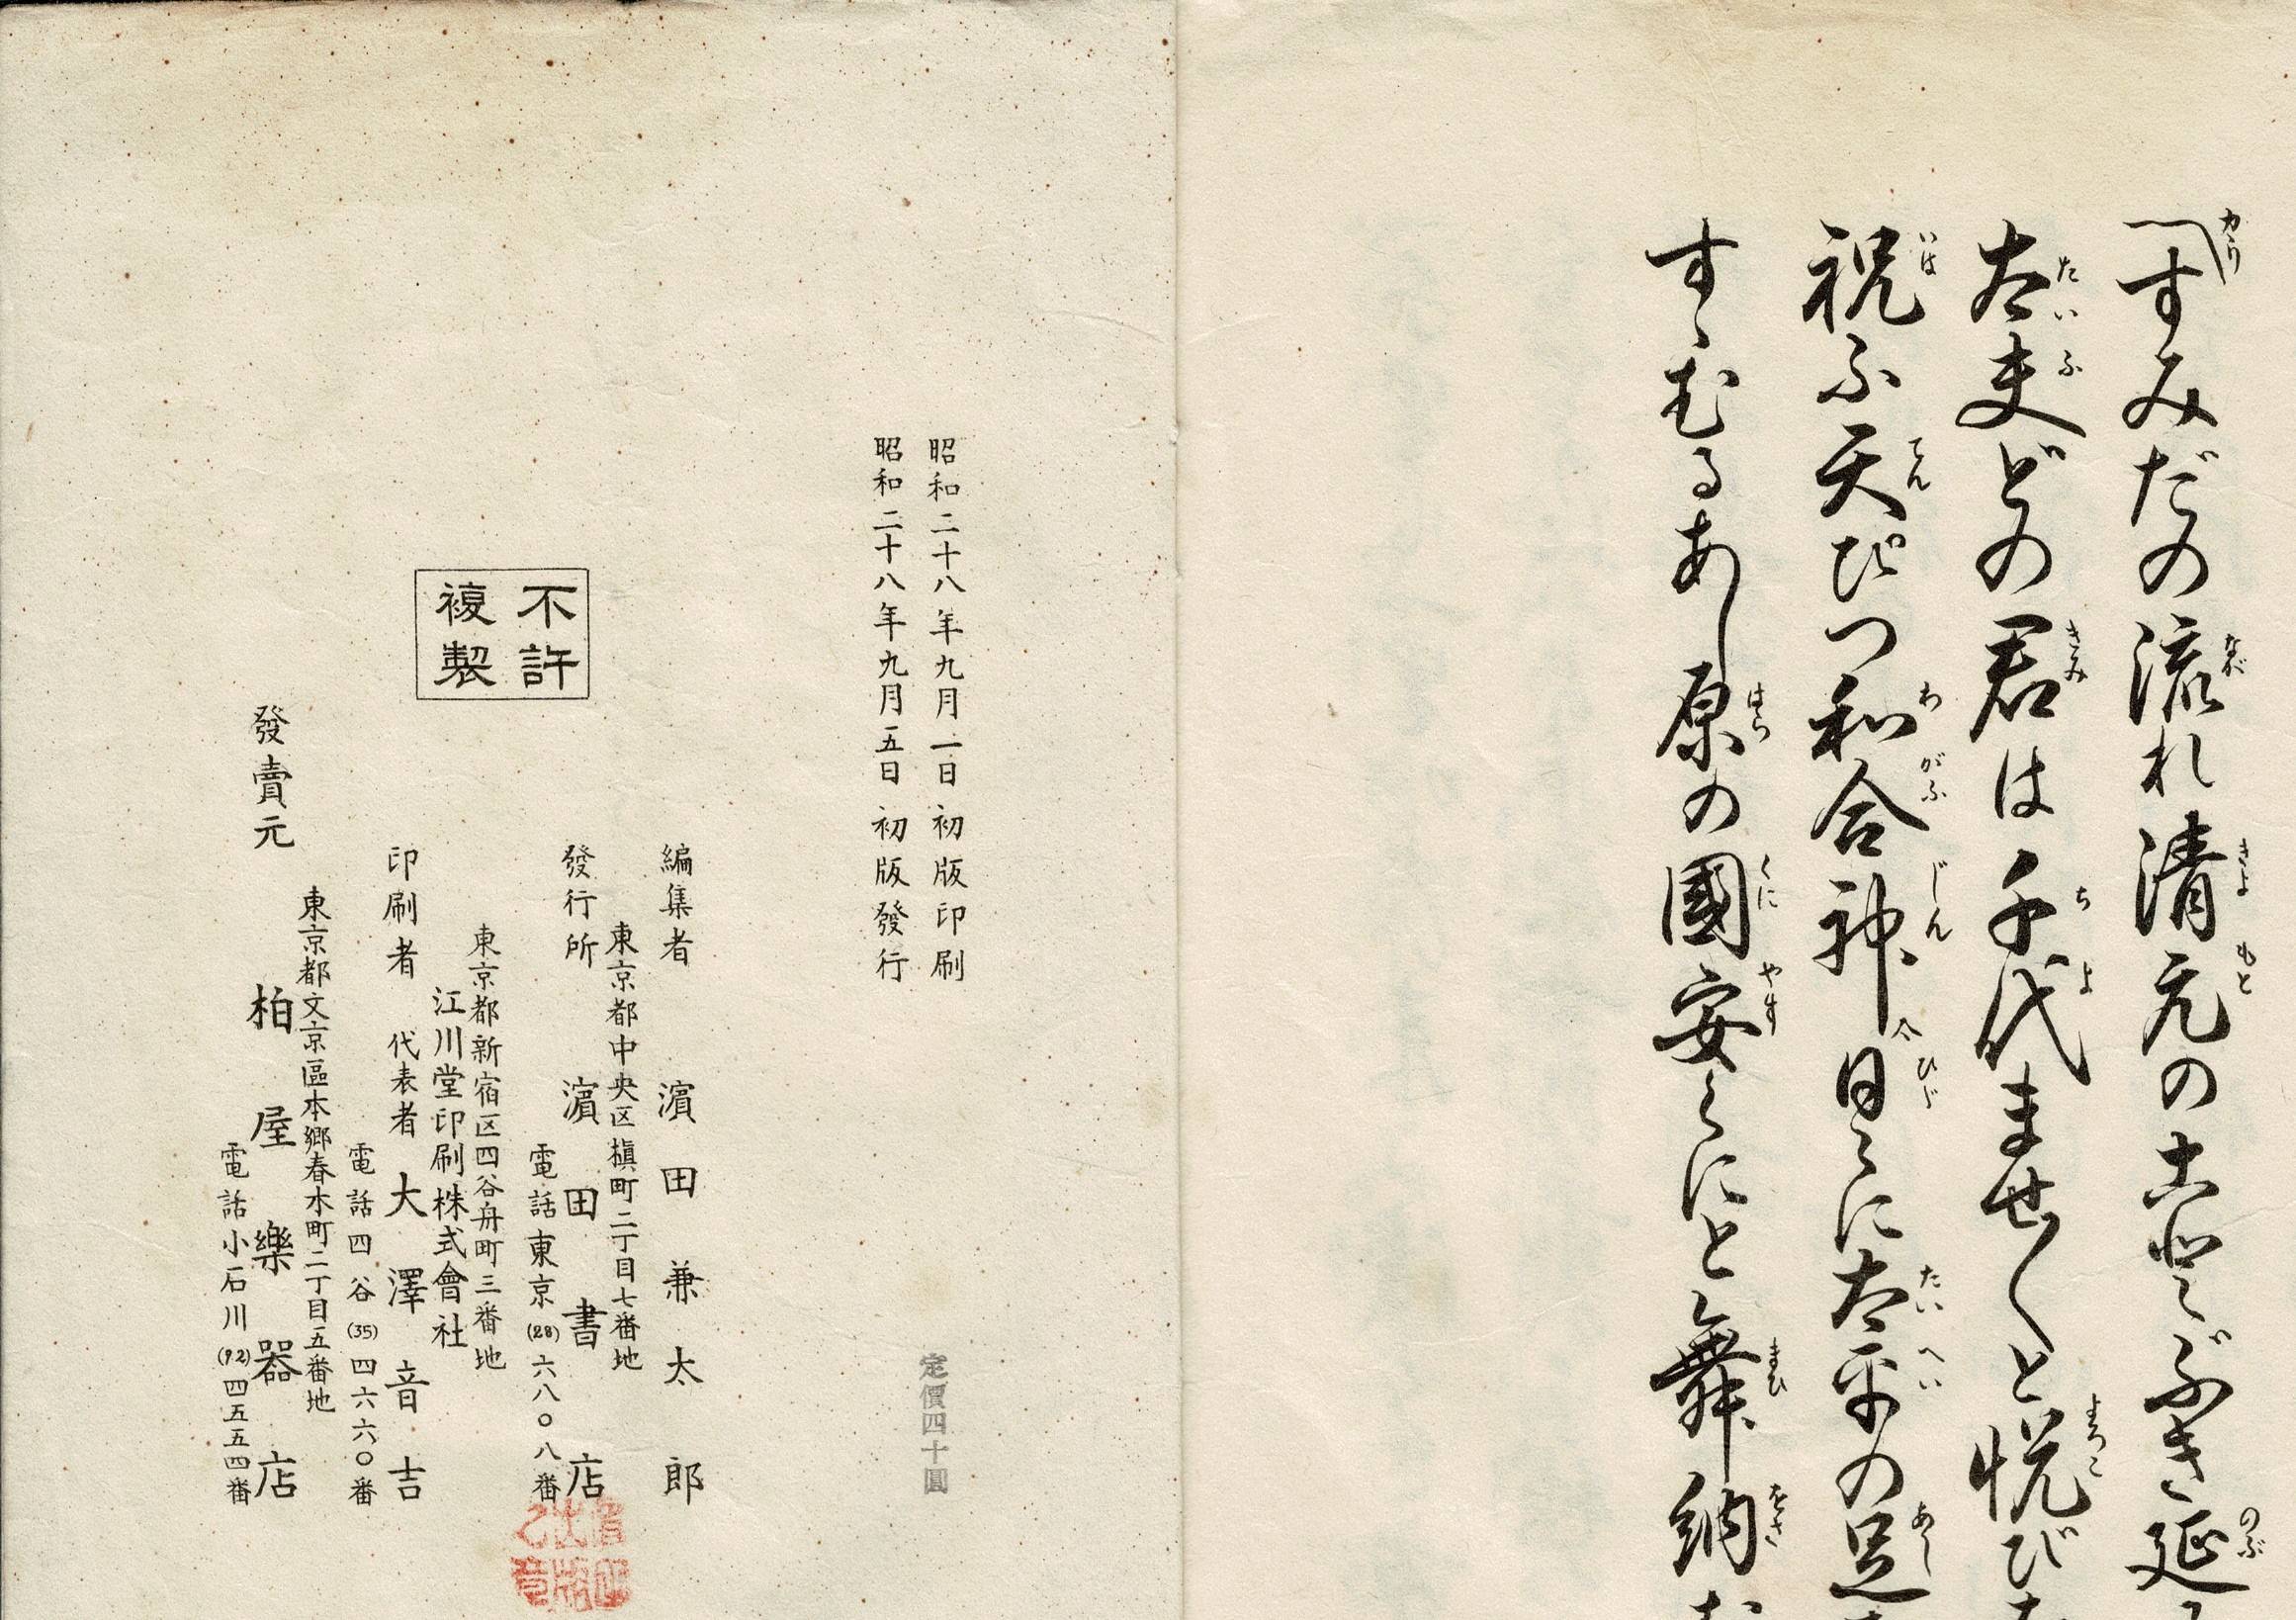 カヽリ
すみだの流れ清元のことぶき延
太夫どの君は千代ませ〱と悦びた
祝ふ天ぴつ和合神日〻に太平の足
すゝむるあし原の國安〻にと舞納む
昭和二十八年九月一日初版印刷
昭和二十八年九月五日初版發行
定價四十圓
編集者 濵田兼太郎
東京都中央区槇町二丁目七番地
發行所 濵田書店
電話東京(28)六八〇八番
不許
複製
東京都新宿区四谷舟町三番地
江川堂印刷株式會社
印刷者 代表者 大澤音吉
電話四谷(35)四六六〇番
東京都文京區本郷春木町二丁目五番地
發賣元 柏屋樂器店
電話小石川(92)四五五四番